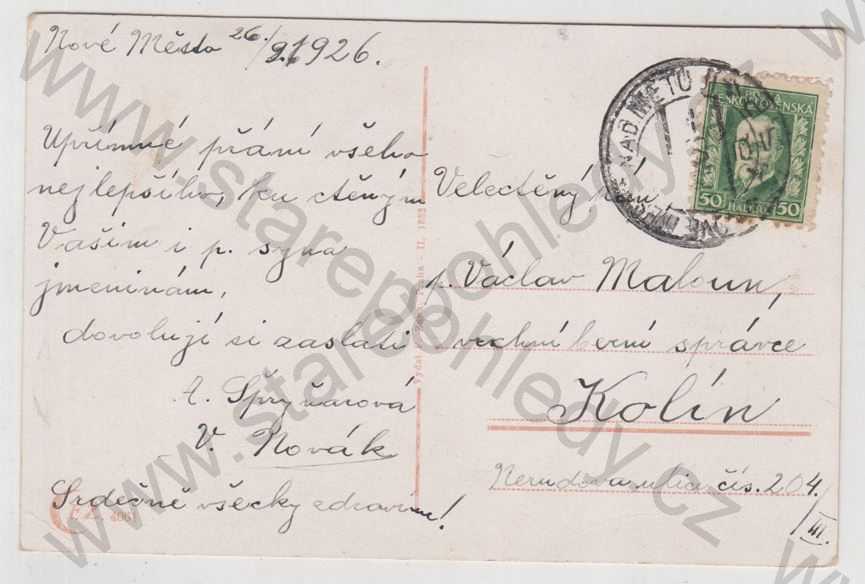 Nové Město 26./9. 1926.
Upřímné přání všeho
nejlepšího, ku ctěným
Vašim i p. syna
jmeninám,
dovolují si zaslati
A. Špryňarová
V. Novák
Srdečně všecky zdravím!
4061
II, 1882
ČESKOSLOVENSKÁ
50 HALÉŘŮ 50
NAD METUJÍ
Velectěný pan
p. Václav Maloun,
vrchní berní správce
Kolín
Nerudova ulice čís. 204/III.
www.starepohledy.cz